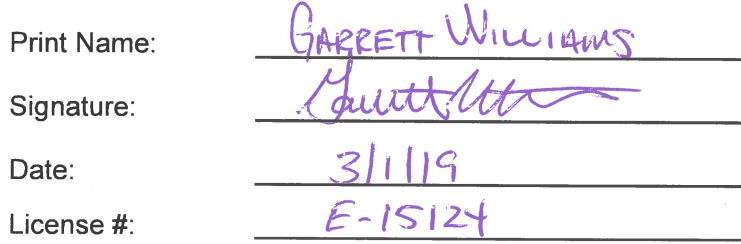 Print Name: GARRETT WILLIAMS
Signature: Garrett
Date: 3/1/19
License #: E-15124